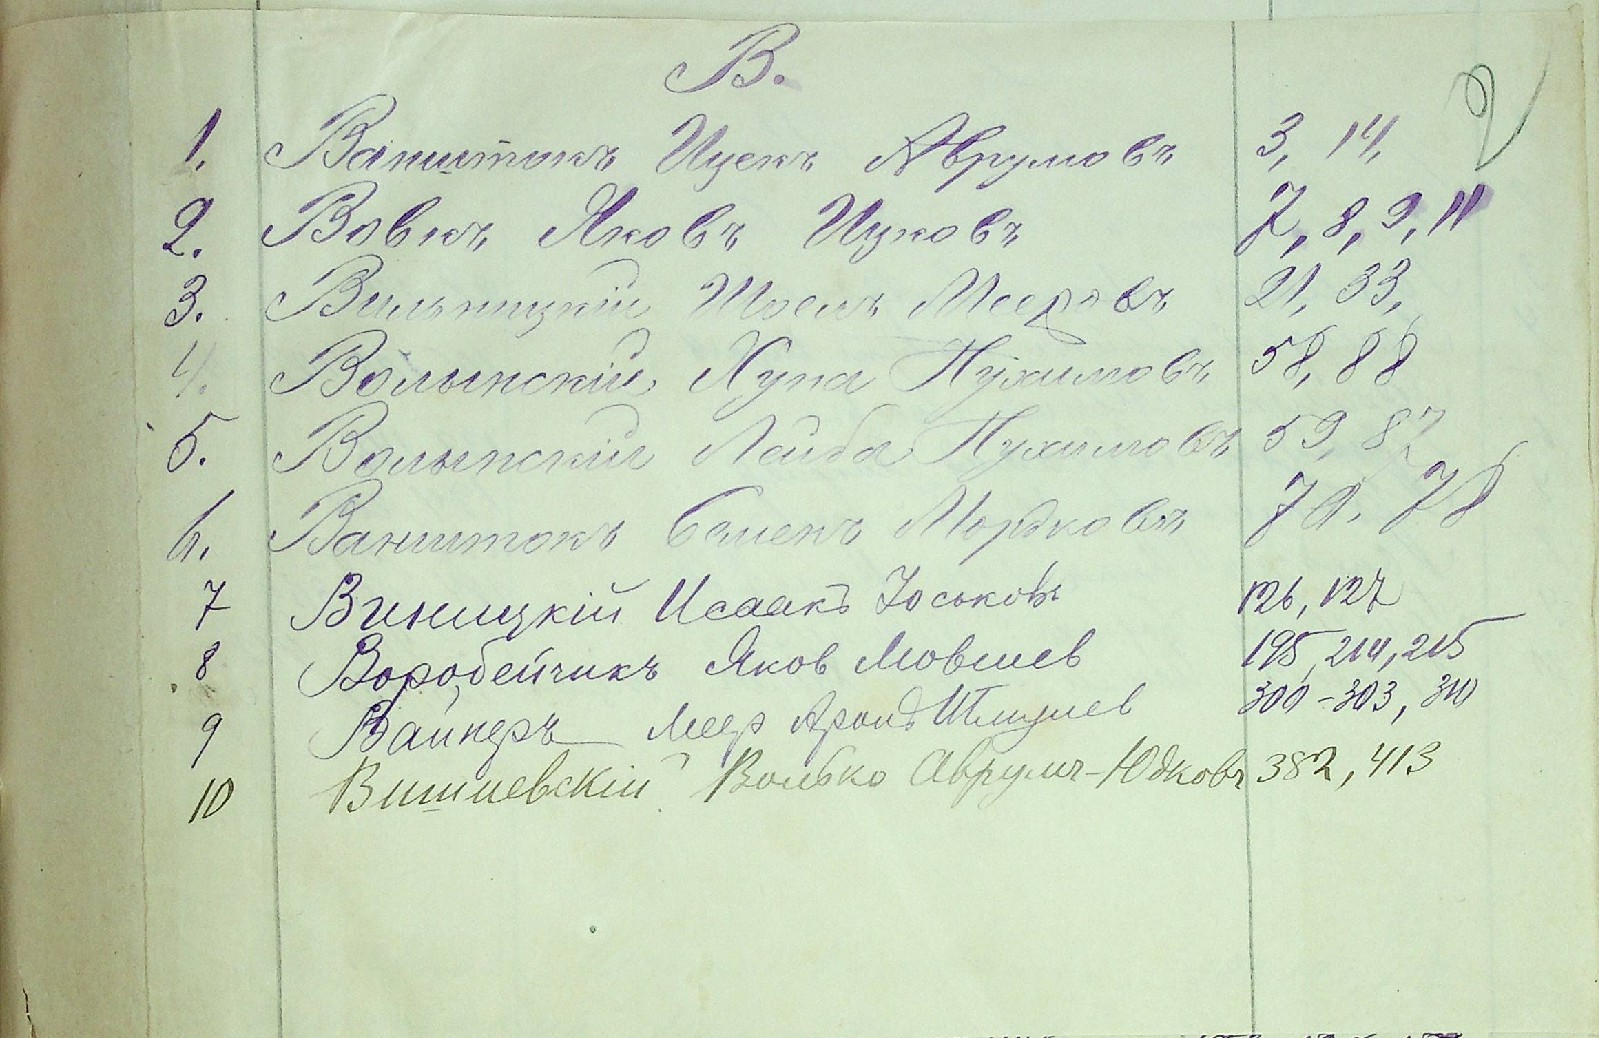 В.
2
1. Ванштокъ Ицекъ Аврумовъ 3, 14,
2. Вовкъ Яковъ Ицковъ 7, 8, 9, 11
3. Вильницкій Шоелъ Мееровъ 21, 33,
4. Волынскій Хуна Нухимовъ 58, 88
5. Волынскій Лейба Нухимовъ 59, 87
6. Ванштокъ Мордковъ 78
7 Виницкій Исаакъ Іоськовъ 126, 127
8 Воробейчикъ Яков Мовшев 195, 214, 215
9 Вайнеръ Меер Арон Шмулев 300-303, 310
10 Вишневскій Волько Аврумъ-Юдковъ 382, 413